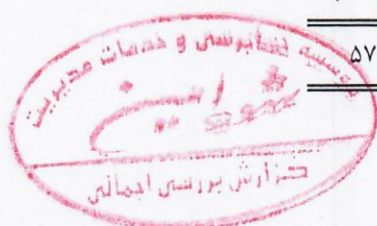 ۵۷
موسسه حسابرسی و خدمات مدیریت
شهود امین
گزارش بررسی اجمالی